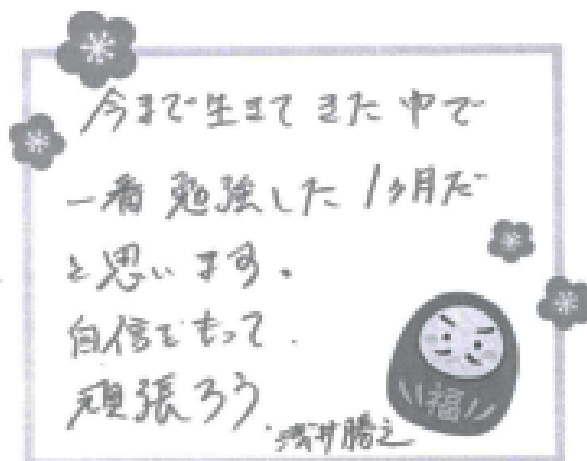 今まで生きてきた中で
一番勉強した1ヶ月だ
と思います。
自信をもって.
頑張ろう.
浅井勝之
福